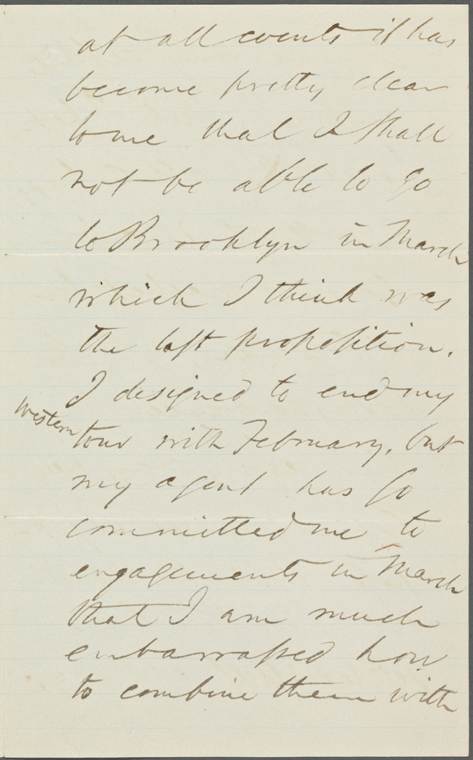 at all events it has
become pretty clear
to me that I shall
not be able to go
to Brooklyn in March
which I think was
the last proposition.
I designed to end my
western
tour with February, but
my agent has so
committed me to
engagements in March
that I am much
embarrassed how
to combine them with